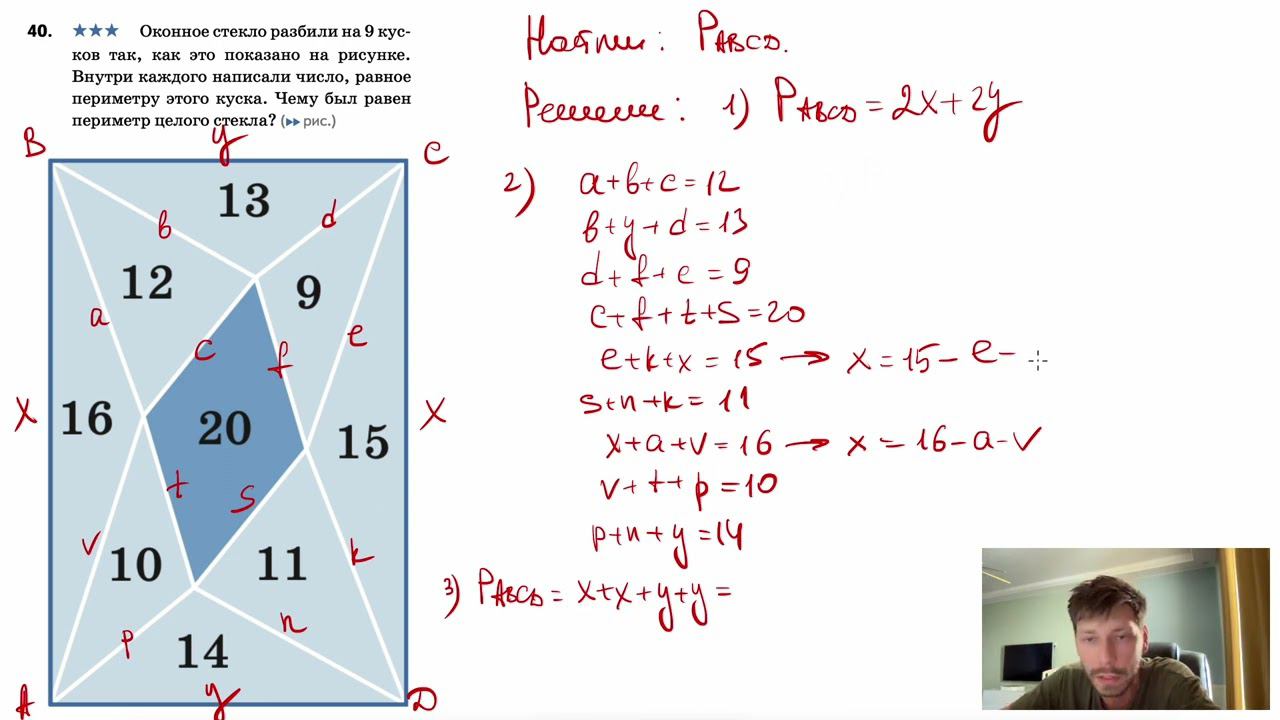 40. ★★★ Оконное стекло разбили на 9 кус-
ков так, как это показано на рисунке.
Внутри каждого написали число, равное
периметру этого куска. Чему был равен
периметр целого стекла? (▸▸ рис.)
Найти: PABCD.
Решение: 1) PABCD = 2x+2y
B y C
13
b d
12 9
a e
c f
X 16 20 15 X
t s
v k
10 11
p n
14
A y D
2) a+b+c=12
b+y+d=13
d+f+e=9
c+f+t+s=20
e+k+x=15 → x=15-e-
s+n+k=11
x+a+v=16 → x=16-a-v
v+t+p=10
p+n+y=14
3) PABCD = x+x+y+y=